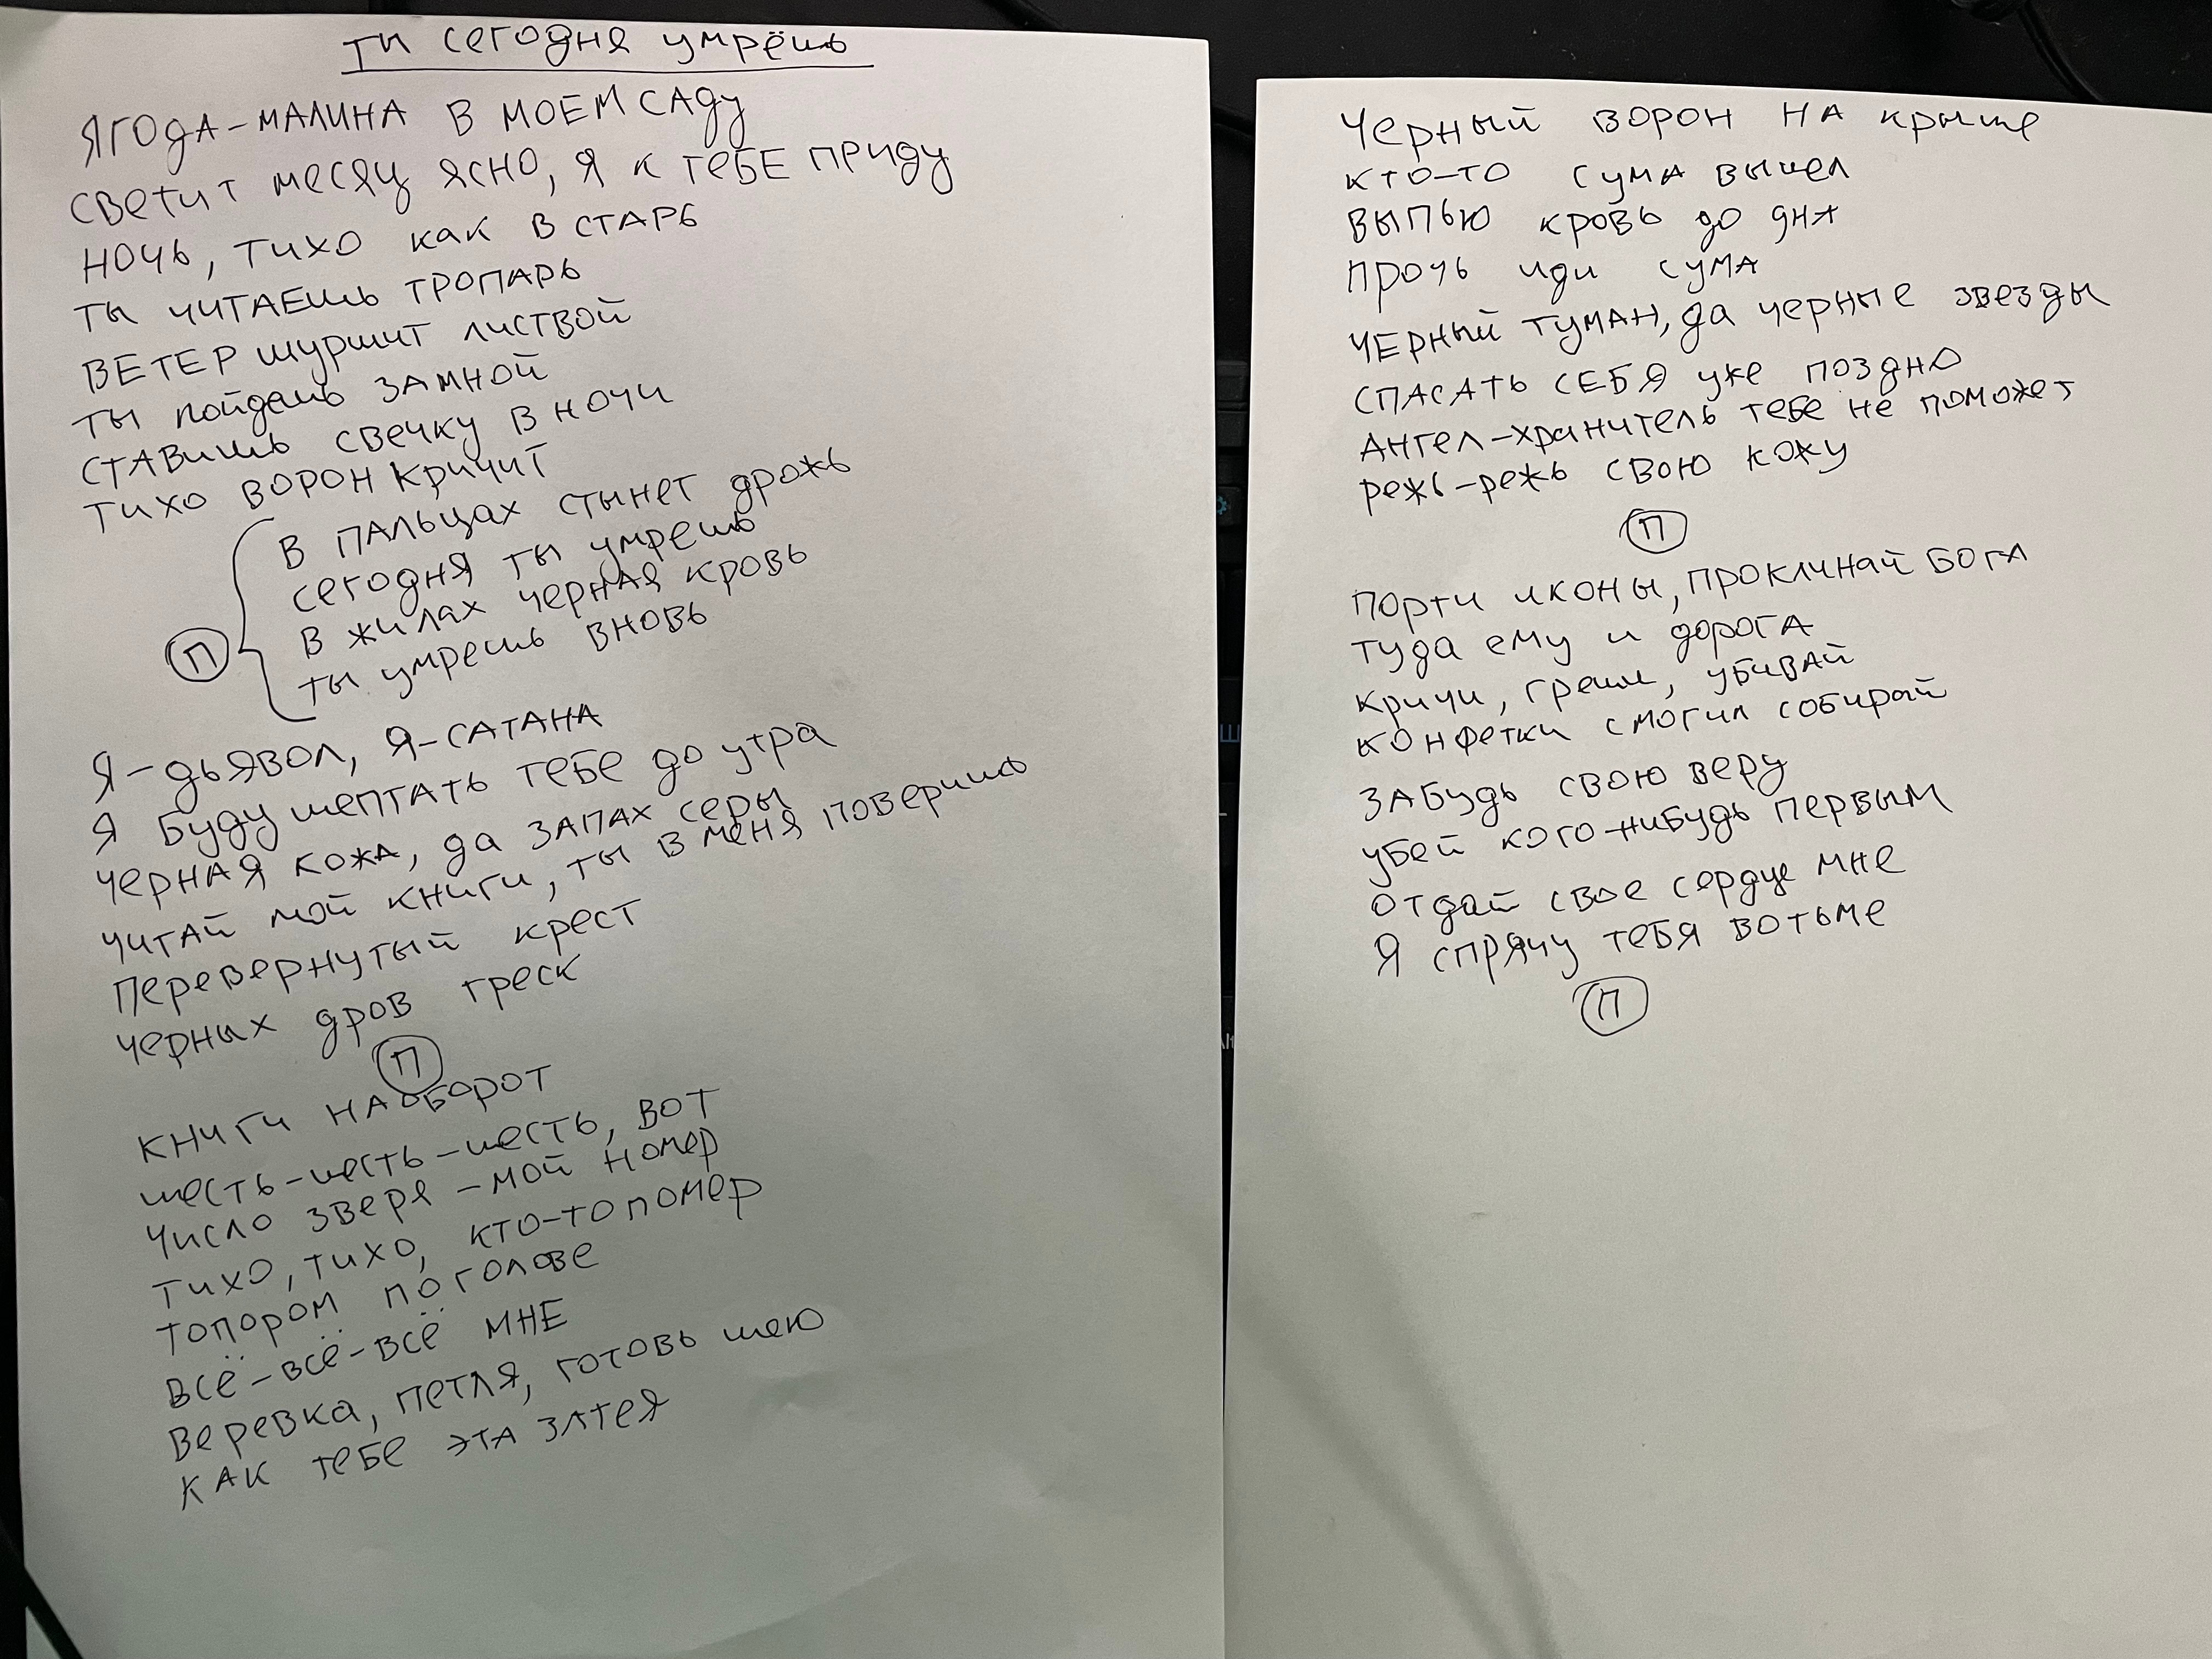 ты сегодня умрёшь
ЯГОДА-МАЛИНА В МОЕМ САДУ
СВЕТИТ МЕСЯЦ ЯСНО, Я К ТЕБЕ ПРИДУ
НОЧЬ, ТИХО КАК В СТАРЬ
ТЫ ЧИТАЕШЬ ТРОПАРЬ
ВЕТЕР ШУРШИТ ЛИСТВОЙ
ТЫ ПОЙДЕШЬ ЗАМНОЙ
СТАВИШЬ СВЕЧКУ В НОЧИ
ТИХО ВОРОН КРИЧИТ
В ПАЛЬЦАХ СТЫНЕТ ДРОЖЬ
СЕГОДНЯ ТЫ УМРЕШЬ
В ЖИЛАХ ЧЕРНАЯ КРОВЬ
ТЫ УМРЕШЬ ВНОВЬ
П
Я-ДЬЯВОЛ, Я-САТАНА
Я БУДУ ШЕПТАТЬ ТЕБЕ ДО УТРА
ЧЕРНАЯ КОЖА, ДА ЗАПАХ СЕРЫ
ЧИТАЙ МОЙ КНИГИ, ТЫ В МЕНЯ ПОВЕРИШЬ
ПЕРЕВЕРНУТЫЙ КРЕСТ
ЧЕРНЫХ ДРОВ ТРЕСК
П
КНИГИ НАОБОРОТ
ШЕСТЬ-ШЕСТЬ-ШЕСТЬ, ВОТ
ЧИСЛО ЗВЕРЯ - МОЙ НОМЕР
ТИХО, ТИХО, КТО-ТО ПОМЕР
ТОПОРОМ ПО ГОЛОВЕ
ВСЁ-ВСЁ-ВСЁ МНЕ
ВЕРЕВКА, ПЕТЛЯ, ГОТОВЬ ШЕЮ
КАК ТЕБЕ ЭТА ЗАТЕЯ
ЧЕРНЫЙ ВОРОН НА КРЫШЕ
КТО-ТО СУМА ВЫШЕЛ
ВЫПЬЮ КРОВЬ ДО ДНА
ПРОЧЬ ИДИ СУМА
ЧЕРНЫЙ ТУМАН, ДА ЧЕРНЫЕ ЗВЕЗДЫ
СПАСАТЬ СЕБЯ УЖЕ ПОЗДНО
АНГЕЛ-ХРАНИТЕЛЬ ТЕБЕ НЕ ПОМОЖЕТ
РЕЖЬ-РЕЖЬ СВОЮ КОЖУ
П
ПОРТИ ИКОНЫ, ПРОКЛИНАЙ БОГА
ТУДА ЕМУ И ДОРОГА
КРИЧИ, ГРЕШИ, УБИВАЙ
КОНФЕТКИ С МОГИЛ СОБИРАЙ
ЗАБУДЬ СВОЮ ВЕРУ
УБЕЙ КОГО-НИБУДЬ ПЕРВЫМ
ОТДАЙ СВОЕ СЕРДЦЕ МНЕ
Я СПРЯЧУ ТЕБЯ ВОТЬМЕ
П